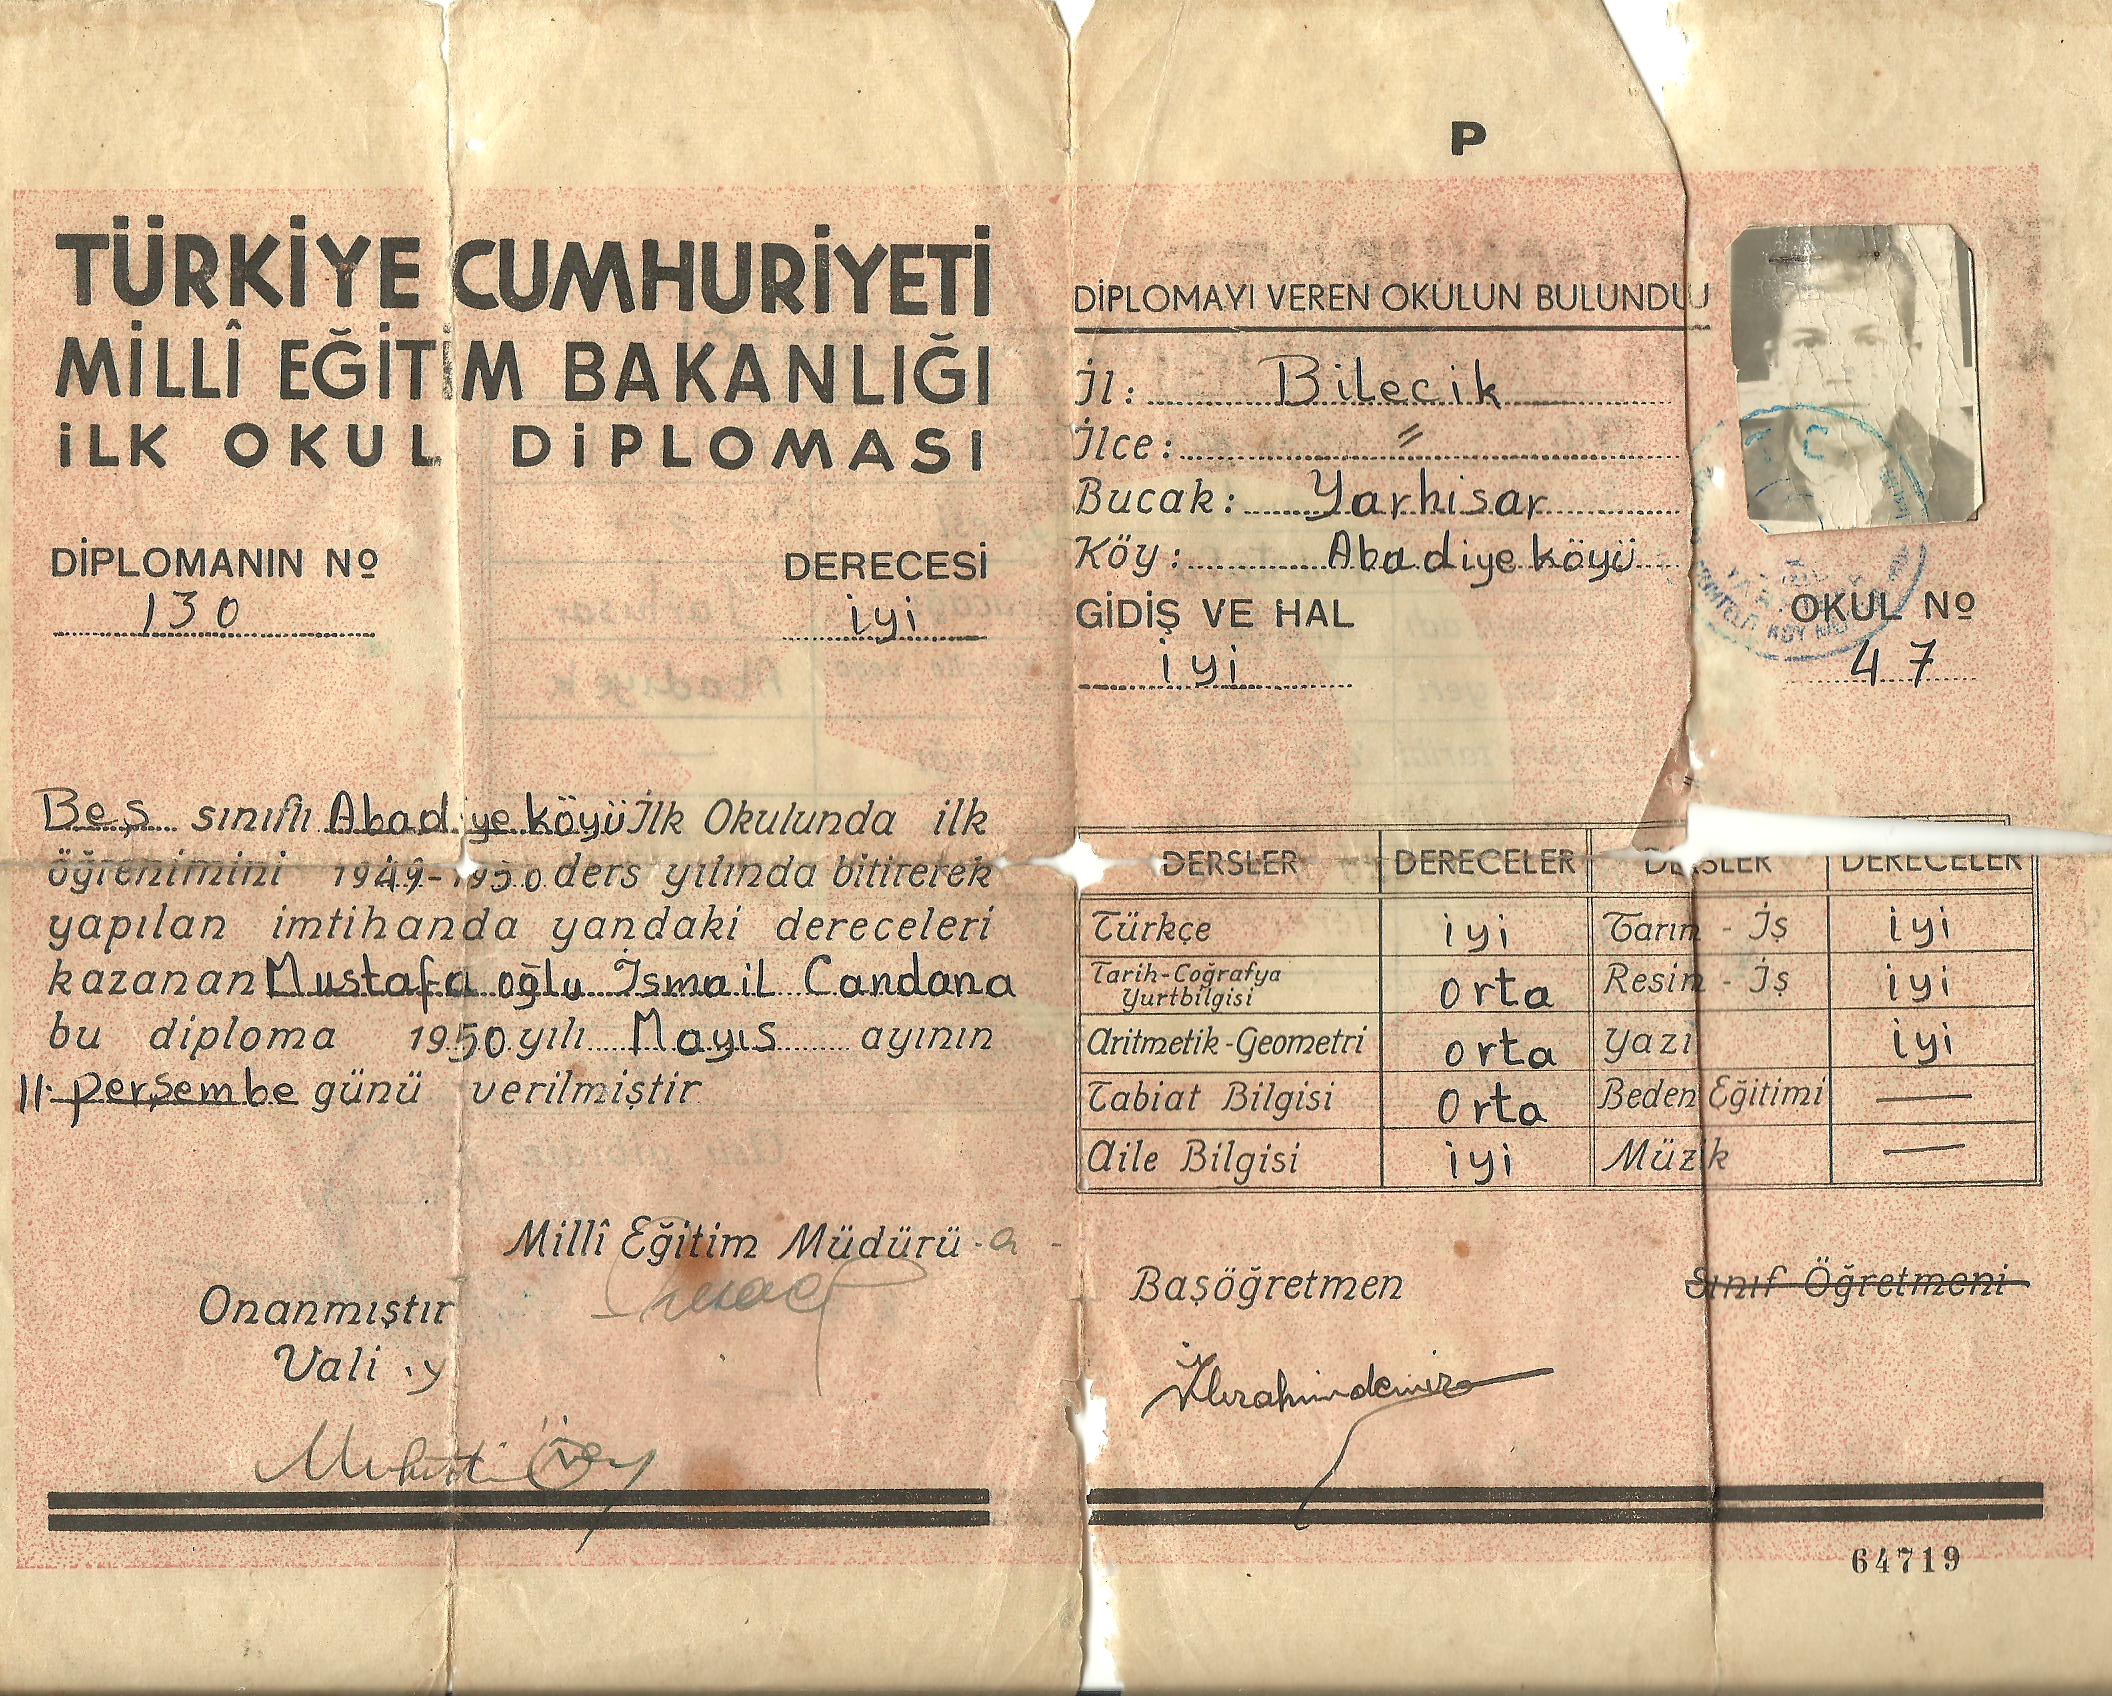 P
TÜRKİYE CUMHURİYETİ
MİLLÎ EĞİTİM BAKANLIĞI
İLK OKUL DİPLOMASI
DİPLOMANIN No
130
DERECESİ
iyi
Beş sınıflı Abadiye köyü İlk Okulunda ilk
öğrenimini 1949-1950 ders yılında bitirerek
yapılan imtihanda yandaki dereceleri
kazanan Mustafa oğlu İsmail Candana
bu diploma 1950 yılı Mayıs ayının
11. perşembe günü verilmiştir
Millî Eğitim Müdürü
Onanmıştır
Vali
DİPLOMAYI VEREN OKULUN BULUNDU
İl: Bilecik
İlce: "
Bucak: Yarhisar
Köy: Abadiye köyü
GİDİŞ VE HAL
iyi
OKUL No
47
DERSLER DERECELER DERSLER DERECELER
Türkçe iyi Tarım - İş iyi
Tarih-Coğrafya Yurtbilgisi orta Resim - İş iyi
Aritmetik-Geometri orta Yazı iyi
Tabiat Bilgisi Orta Beden Eğitimi —
Aile Bilgisi iyi Müzik —
Başöğretmen Sınıf Öğretmeni
64719